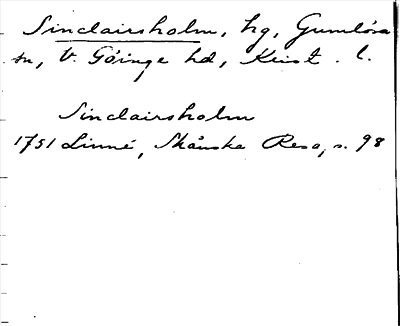 Sinclairsholm, hg, Gumlösa
sn, V. Göinge hd, Krist. l.
Sinclairsholm
1751 Linné, Skånska Resa, s. 98